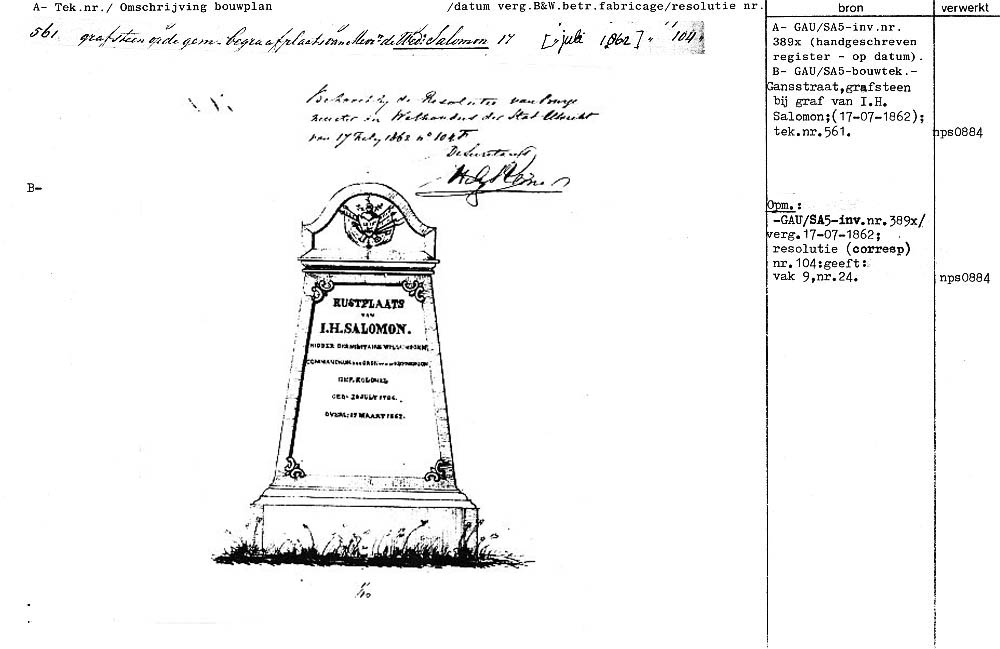 A- Tek.nr./ Omschrijving bouwplan /datum verg.B&W.betr.fabricage/resolutie nr. bron verwerkt
561 grafsteen op de gem. begraafplaats van Mevr. de Wed: Salomon 17 [„ juli 1862] „ " 104 „
A- GAU/SA5-inv.nr.
389x (handgeschreven
register - op datum).
B- GAU/SA5-bouwtek.-
Gansstraat,grafsteen
bij graf van I.H.
Salomon;(17-07-1862);
tek.nr.561. nps0884
Behoort bij de Resolutie van Burge
meester en Wethouders der Stad Utrecht
van 17 July 1862 nº 104
De Secretaris
B-
Opm.:
-GAU/SA5-inv.nr.389x/
verg.17-07-1862;
resolutie (corresp)
nr.104:geeft:
vak 9,nr.24. nps0884
RUSTPLAATS
VAN
I.H.SALOMON.
RIDDER DER MILITAIRE WILLEMSORDE,
COMMANDEUR
GEP. KOLONEL
GEB: JULY
OVERL: 17 MAART 1862.
1/10